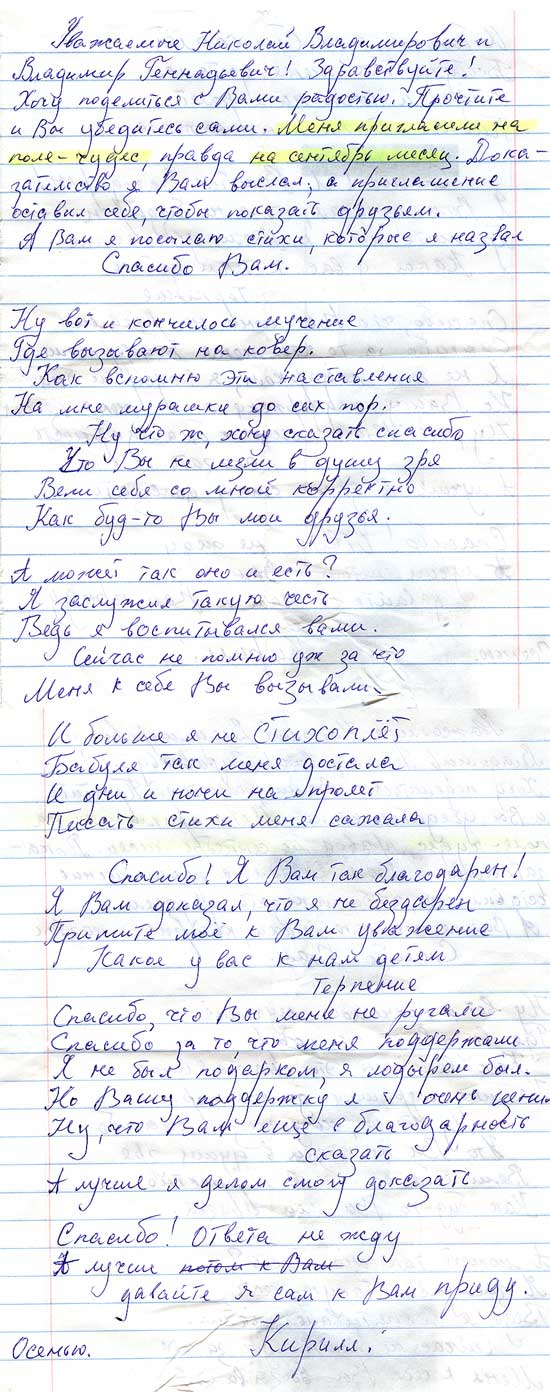 Уважаемые Николай Владимирович и
Владимир Геннадьевич! Здравствуйте!
Хочу поделиться с Вами радостью. Прочтите
и Вы убедитесь сами. Меня пригласили на
поле-чудес, правда на сентябрь месяц. Дока-
зательство я Вам выслал, а приглашение
оставил себе, чтобы показать друзьям.
А Вам я посылаю стихи, которые я назвал
Спасибо Вам.
Ну вот и кончилось мучение
Где вызывают на ковер.
Как вспомню эти наставления
На мне мурашки до сих пор.
Ну что ж, хочу сказать спасибо
Что Вы не лезли в душу зря
Вели себя со мной корректно
Как буд-то Вы мои друзья.
А может так оно и есть?
Я заслужил такую честь
Ведь я воспитывался вами.
Сейчас не помню уж за что
Меня к себе Вы вызывали.
И больше я не Стихоплёт
Бабуля так меня достала
И дни и ночи на пролет
Писать стихи меня сажала
Спасибо! Я Вам так благодарен!
Я Вам доказал, что я не бездарен
Примите моё к Вам уважение
Какое у вас к нам детям
Терпение
Спасибо, что Вы меня не ругали
Спасибо за то, что меня поддержали
Я не был подарком, я лодырем был.
Но Вашу поддержку я очень ценил
Ну, что Вам ещё в благодарность
сказать
А лучше я делом смогу доказать
Спасибо! Ответа не жду
А лучше потом к Вам
давайте я сам к Вам приду.
Осенью. Кирилл.